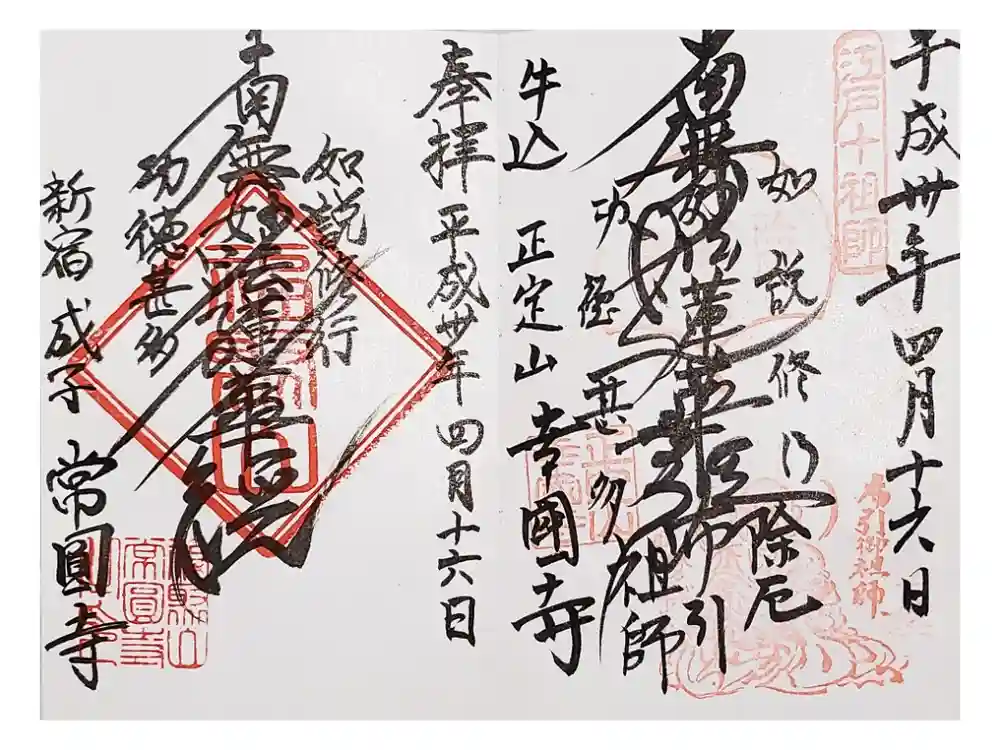 平成丗年四月十六日
江戸十祖師
布引御祖師
如説修行
除厄
南無妙法蓮華経
布引祖師
功徳甚多
牛込 正定山 幸國寺
奉拝 平成丗年四月十六日
如説修行
南無妙法蓮華経
功徳甚多
新宿 成子 常圓寺
常圓寺